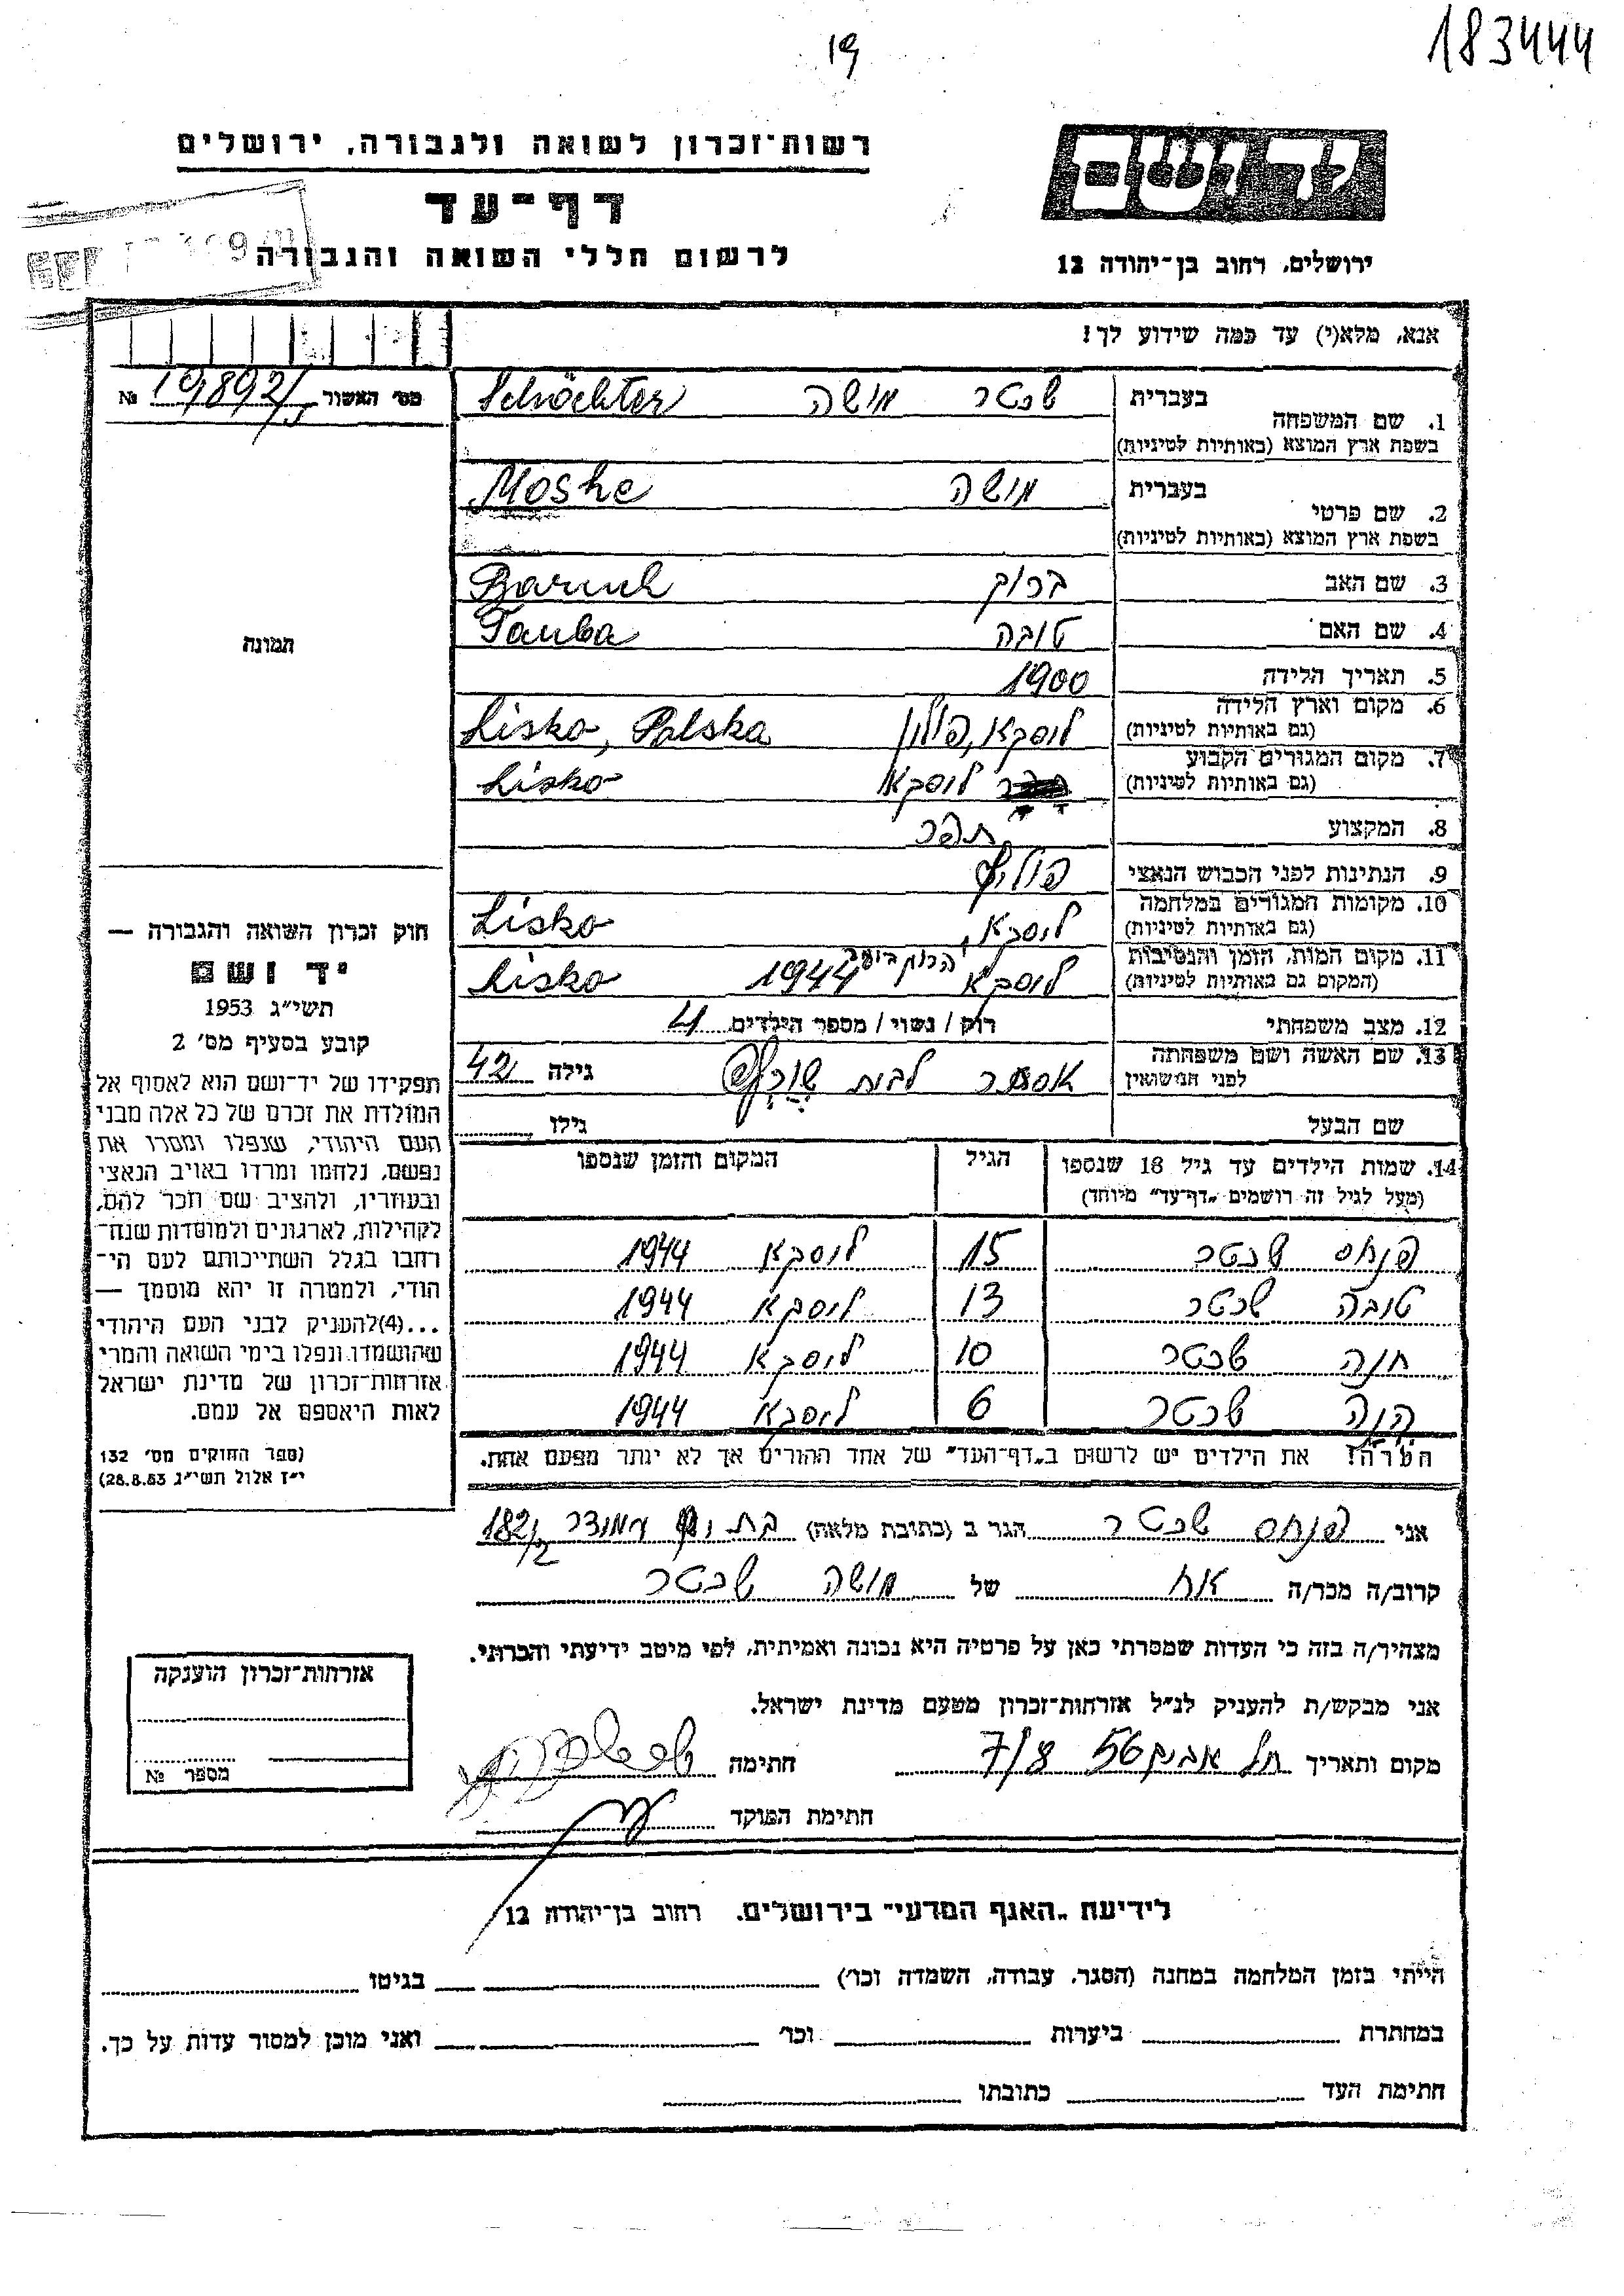 183444
19
רשות־זכרון לשואה ולגבורה, ירושלים
יד ושם
דף־עד
לרשום חללי השואה והגבורה
ירושלים, רחוב בן־יהודה 12
אנא, מלא(י) עד כמה שידוע לך!
מס׳ האשור 19892/ №
1. שם המשפחה בעברית שכטר מושה Schächter
בשפת ארץ המוצא (באותיות לטיניות)
2. שם פרטי בעברית מושה Moshe
בשפת ארץ המוצא (באותיות לטיניות)
3. שם האב ברוך Baruch
4. שם האם טובה Tauba
5. תאריך הלידה 1900
6. מקום וארץ הלידה ליסקא, פולין Lisko, Polska
(גם באותיות לטיניות)
7. מקום המגורים הקבוע ליסקא Lisko
(גם באותיות לטיניות)
8. המקצוע
9. הנתינות לפני הכבוש הנאצי פולין
10. מקומות המגורים במלחמה ליסקא, Lisko
(גם באותיות לטיניות)
11. מקום המות, הזמן והנסיבות ליסקא 1944 Lisko
(המקום גם באותיות לטיניות)
12. מצב משפחתי רוק / נשוי / מספר הילדים 4
13. שם האשה ושם משפחתה אסתר לבית גילה 42
לפני הנישואין
שם הבעל גילו
14. שמות הילדים עד גיל 18 שנספו הגיל המקום והזמן שנספו
(מעל לגיל זה רושמים „דף־עד״ מיוחד)
פנחס שכטר 15 ליסקא 1944
טובה שכטר 13 ליסקא 1944
חנה שכטר 10 ליסקא 1944
שכטר 6 ליסקא 1944
הערה! את הילדים יש לרשום ב„דף־העד״ של אחד ההורים אך לא יותר מפעם אחת.
תמונה
חוק זכרון השואה והגבורה —
יד ושם
תשי״ג 1953
קובע בסעיף מס׳ 2
תפקידו של יד־ושם הוא לאסוף אל
המולדת את זכרם של כל אלה מבני
העם היהודי, שנפלו ומסרו את
נפשם, נלחמו ומרדו באויב הנאצי
ובעוזריו, ולהציב שם וזכר להם,
לקהילות, לארגונים ולמוסדות שנח־
רבו בגלל השתייכותם לעם הי־
הודי, ולמטרה זו יהא מוסמך —
...(4)להעניק לבני העם היהודי
שהושמדו ונפלו בימי השואה והמרי
אזרחות־זכרון של מדינת ישראל
לאות היאספם אל עמם.
(ספר החוקים מס׳ 132
י״ז אלול תשי״ג 28.8.53)
אני פנחס שכטר הגר ב (כתובת מלאה) בת ים עמידר 182/2
קרוב/ה מכר/ה אח של מושה שכטר
מצהיר/ה בזה כי העדות שמסרתי כאן על פרטיה היא נכונה ואמיתית, לפי מיטב ידיעתי והכרתי.
אני מבקש/ת להעניק לנ״ל אזרחות־זכרון מטעם מדינת ישראל.
מקום ותאריך תל אביב 7/8 56 חתימה
חתימת הפוקד
אזרחות־זכרון הוענקה
מספר №
לידיעת „האגף המדעי״ בירושלים, רחוב בן־יהודה 12
הייתי בזמן המלחמה במחנה (הסגר, עבודה, השמדה וכו׳) בגיטו
במחתרת ביערות וכו׳ ואני מוכן למסור עדות על כך.
חתימת העד כתובתו